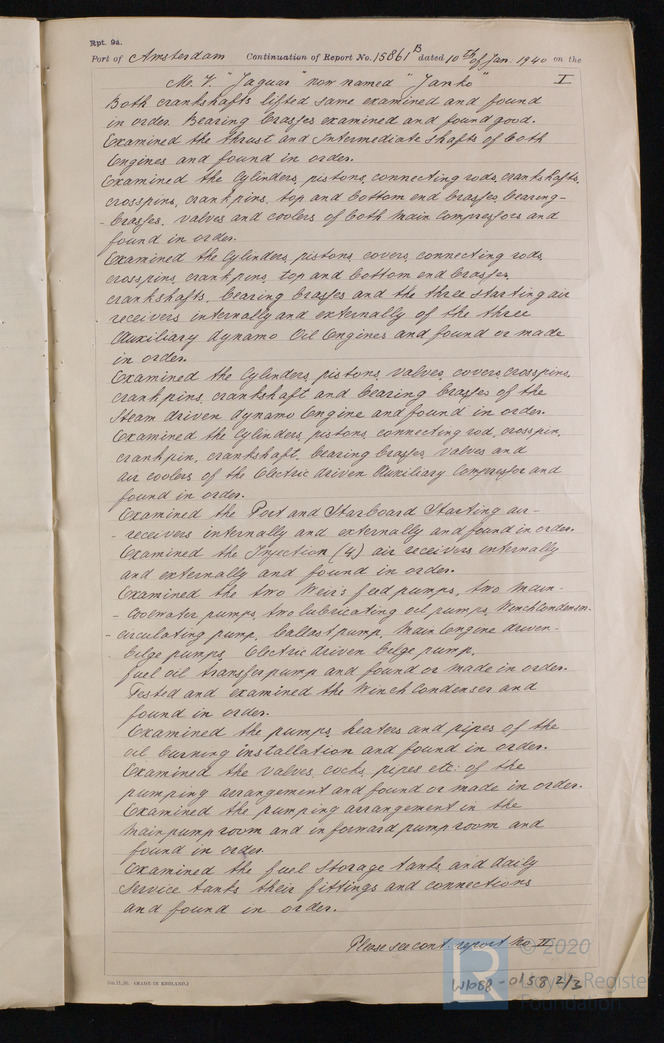 Rpt. 9a.
Port of Amsterdam Continuation of Report No. 15861B dated 10th of Jan: 1940 on the
M. V. "Jaguar" now named "Janko" I
Both crankshafts lifted same examined and found
in order. Bearing brasses examined and found good.
Examined the thrust and Intermediate shafts of both
Engines and found in order.
Examined the Cylinders, pistons, connecting rods, crankshafts,
crosspins, crankpins, top and bottom end brasses, bearing-
- brasses, valves and coolers of both Main Compressors and
found in order.
Examined the Cylinders, pistons, covers, connecting rods,
crosspins, crankpins, top and bottom end brasses,
crankshafts, bearing brasses and the three starting air
receivers internally and externally of the three
Auxiliary dynamo Oil Engines and found or made
in order.
Examined the Cylinders, pistons, valves, covers, crosspins,
crankpins, crankshaft and bearing brasses of the
Steam driven dynamo Engine and found in order.
Examined the Cylinders, pistons, connecting rod, crosspin,
crankpin, crankshaft, bearing brasses, valves and
air coolers of the Electric driven Auxiliary Compressor and
found in order.
Examined the Port and Starboard Starting air-
- receivers internally and externally and found in order.
Examined the Injection (4) air receivers internally
and externally and found in order.
Examined the two Weir's feed pumps, two Main-
- Coolwater pumps, two lubricating oil pumps, Winch Condenser-
- circulating pump, ballast pump, Main Engine driven-
- bilge pumps, Electric driven bilge pump,
fuel oil transfer pump and found or made in order.
Tested and examined the Winch Condenser and
found in order.
Examined the pumps, heaters and pipes of the
oil burning installation and found in order.
Examined the valves, cocks, pipes etc: of the
pumping arrangement and found or made in order.
Examined the pumping arrangement in the
Main pumproom and in forward pumproom and
found in order.
Examined the fuel Storage tanks and daily
Service tanks their fittings and connections
and found in order.
Please see cont. report No II
© 2020
LR
Lloyd's Register
Foundation
W1088-0158 2/3
(MADE IN ENGLAND.)